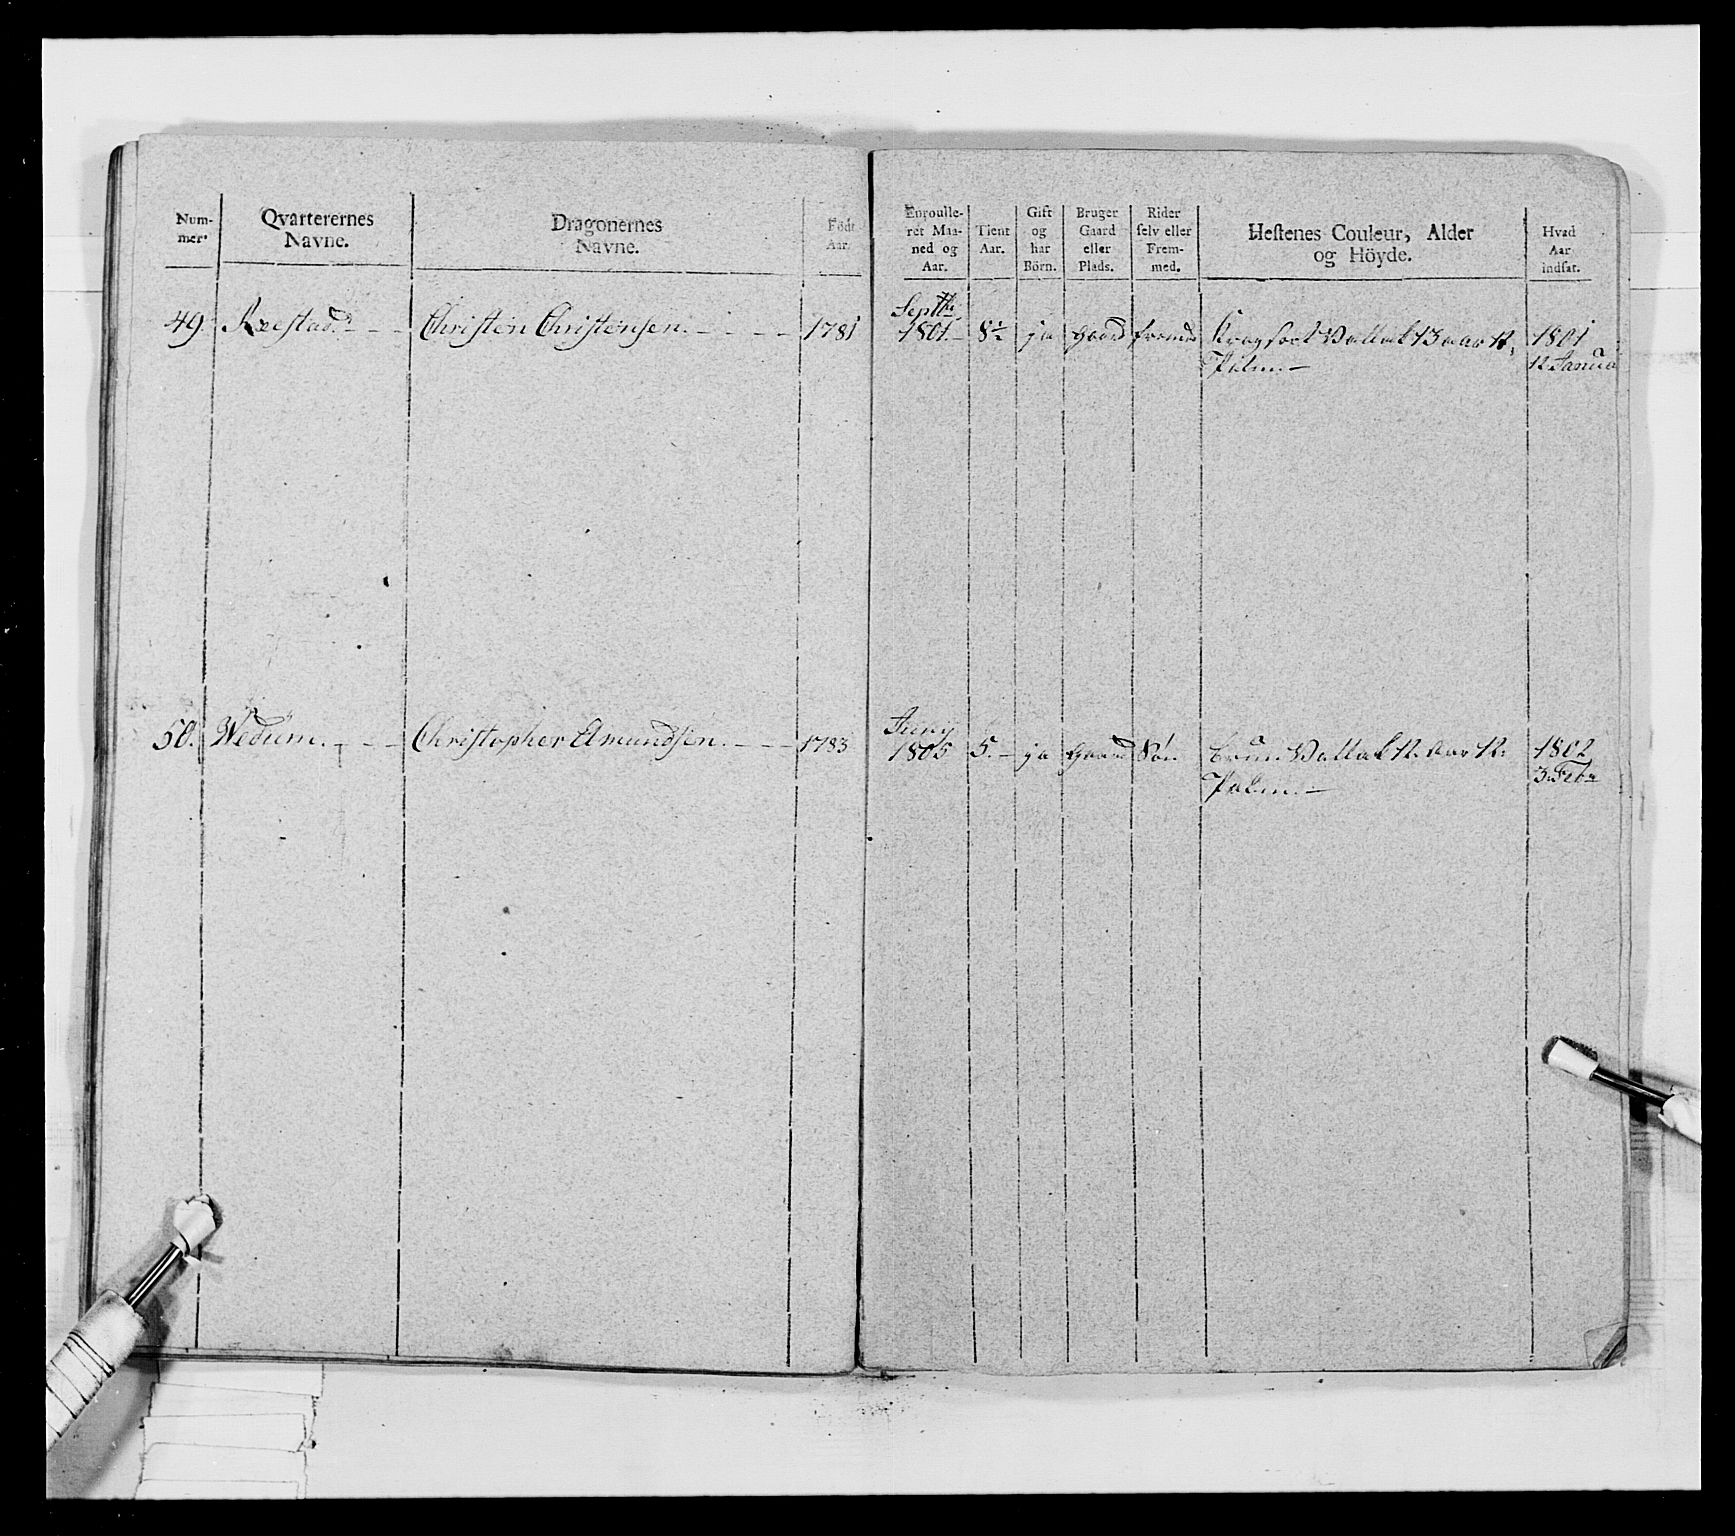 Num-
mer.
Qvarterernes
Navne.
Dragonernes
Navne.
Födt
Aar.
Enroulle-
ret Maa-
ned og
Aar.
Tient
Aar.
Gift
og
har
Börn.
Bruger
Gaard
eller
Plads.
Rider
selv eller
Frem-
med.
Hestenes Couleur, Alder
og Höyde.
Hvad
Aar
indsat.
49. Christen Christensen. 1781
Septbr
1801. 8½ ja Gaard fremed Vallak 13 aar 12
Palm.
1801
12 Janua
50. Wedum. Christopher Amundsen. 1783
Juny
1805 5. ja Gaard Søn brun Vallak 12 Aar 12
Palm.
1802
3 Febr